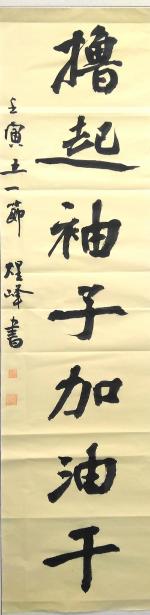 撸起袖子加油干
壬寅五一节 煜峰书